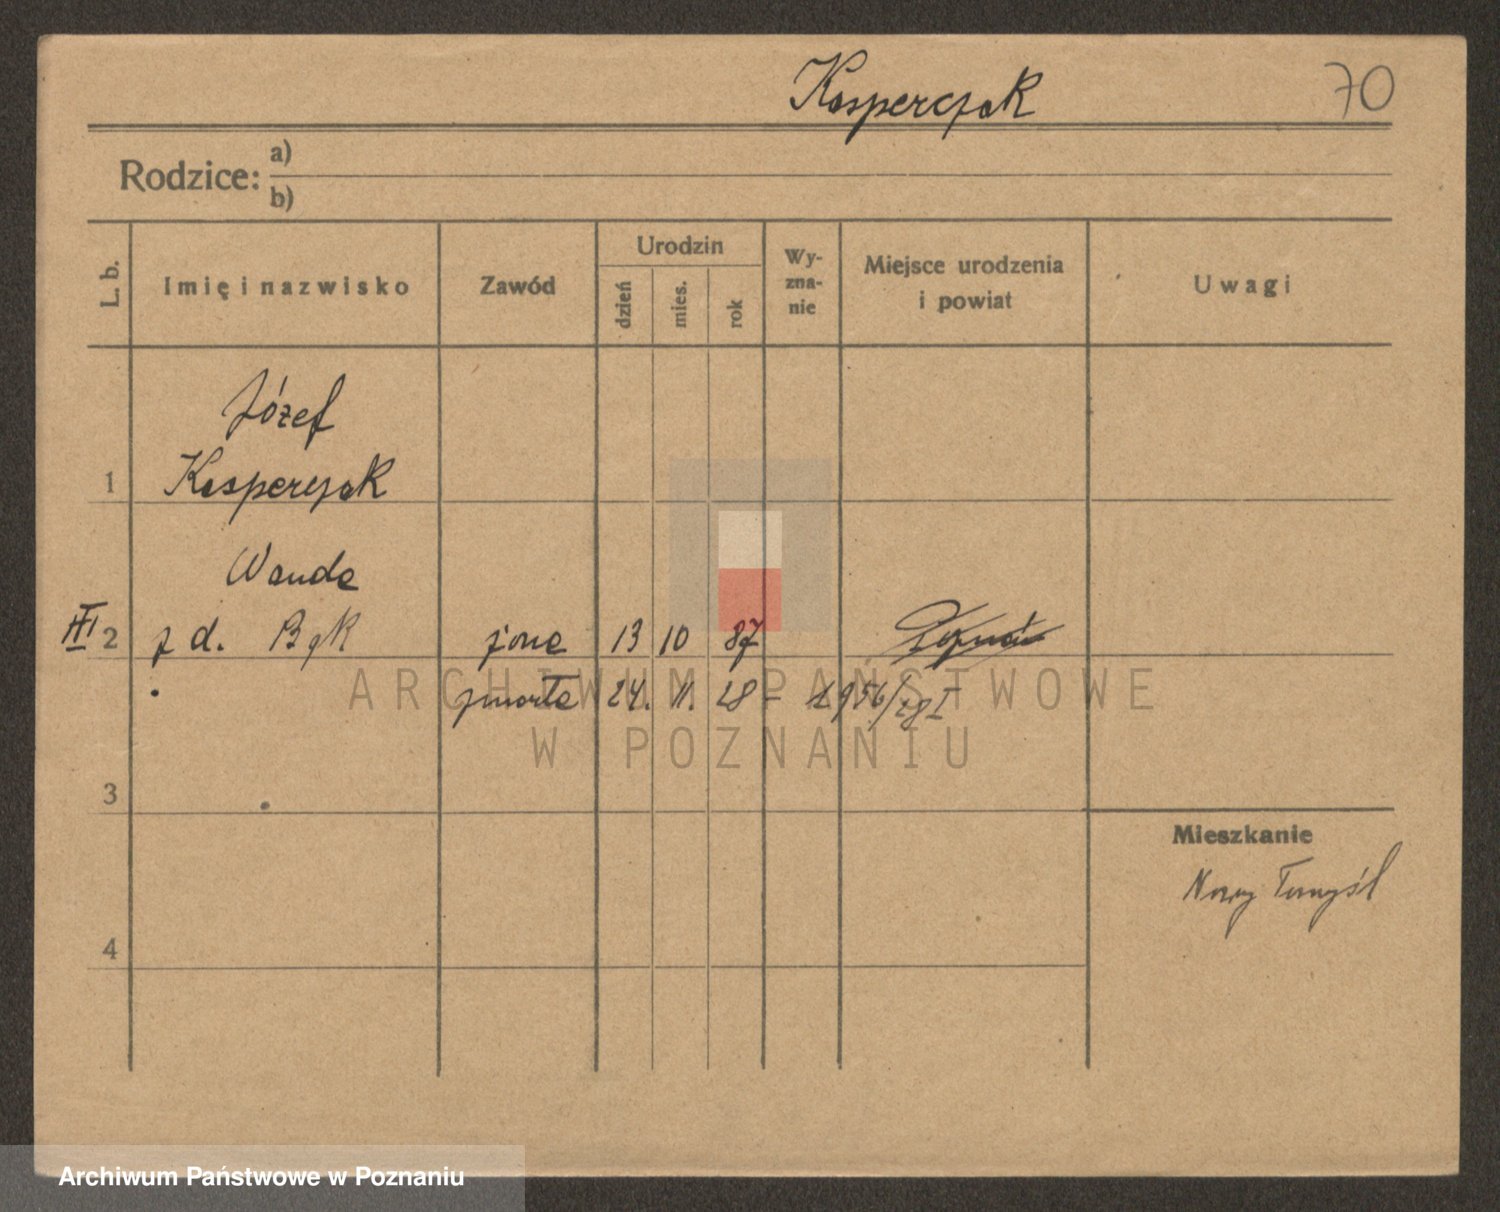 Kasperczak 70
Rodzice: a)
b)
L. b. Imię i nazwisko Zawód Urodzin dzień mies. rok Wy-zna-nie Miejsce urodzenia i powiat Uwagi
Józef
1 Kasperczak
Wanda
III 2 z d. Bąk żona 13 10 87 Poznań
zmarła 24. 11. 28 - 1956/28 I
3
Mieszkanie
Nowy Tomyśl
4
ARCHIWUM PAŃSTWOWE
W POZNANIU
Archiwum Państwowe w Poznaniu